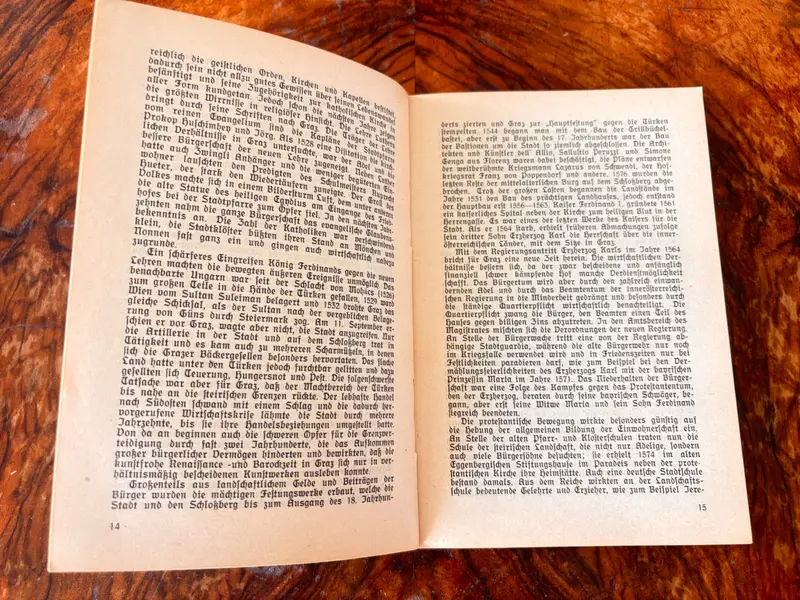 reichlich die geistlichen Orden, Kirchen und Kapellen beschenkt,
dadurch sein nicht allzu gutes Gewissen über seinen Lebenswandel
besänftigt und seine Zugehörigkeit zur katholischen Kirche in
aller Form kundgetan. Jedoch schon die nächsten Jahre zeigen
die größten Wirrnisse in religiöser Hinsicht. Die Lehre Luthers
dringt durch seine Schriften nach Graz. Die Träger der Lehre
vom reinen Evangelium sind die Kapläne der Stadtpfarre
Prokop Huschimhey und Jörg. Als 1528 eine Visitation die kirch-
lichen Verhältnisse in Graz untersuchte, war der Adel und die
bessere Bürgerschaft der neuen Lehre zugeneigt. Neben Luther
hatte auch Zwingli Anhänger und die weniger begüterten Ein-
wohner lauschten den Predigten des Schulmeisters Ruprecht
Hueter, der stark den Wiedertäufern zuneigte. Der Groll des
Volkes machte sich in einem Bildersturm Luft, dem unter anderen
die alte Statue des heiligen Egydius am Eingange des Fried-
hofes bei der Stadtpfarre zum Opfer fiel. In den nächsten Jahr-
zehnten nahm die ganze Bürgerschaft das evangelische Glaubens-
bekenntnis an. Die Zahl der Katholiken war verschwindend
klein, die Stadtklöster büßten ihren Stand an Mönchen und
Nonnen fast ganz ein und gingen auch wirtschaftlich nahezu
zugrunde.
Ein schärferes Eingreifen König Ferdinands gegen die neuen
Lehren machten die bewegten äußeren Ereignisse unmöglich. Das
benachbarte Ungarn war seit der Schlacht von Mohács (1526)
zum großen Teile in die Hände der Türken gefallen, 1529 wird
Wien vom Sultan Suleiman belagert und 1532 drohte Graz das
gleiche Schicksal, als der Sultan nach der vergeblichen Belage-
rung von Güns durch Steiermark zog. Am 11. September er-
schien er vor Graz, wagte aber nicht, die Stadt anzugreifen. Nur
die Artillerie in der Stadt und auf dem Schloßberg trat in
Tätigkeit und es kam auch zu mehreren Scharmützeln, in denen
sich die Grazer Bäckergesellen besonders hervortaten. Das flache
Land hatte unter den Türken jedoch furchtbar gelitten und dazu
gesellten sich Teuerung, Hungersnot und Pest. Die folgenschwerste
Tatsache war aber für Graz, daß der Machtbereich der Türken
bis nahe an die steirischen Grenzen rückte. Der lebhafte Handel
nach Südosten schwand mit einem Schlag und die dadurch her-
vorgerufene Wirtschaftskrise lähmte die Stadt durch mehrere
Jahrzehnte, bis sie ihre Handelsbeziehungen umgestellt hatte.
Von da an beginnen auch die schweren Opfer für die Grenzver-
teidigung durch fast zwei Jahrhunderte, die das Aufkommen
großer bürgerlicher Vermögen hinderten und bewirkten, daß die
kunstfrohe Renaissance -und Barockzeit in Graz sich nur in ver-
hältnismäßig bescheidenen Kunstwerken ausleben konnte.
Großenteils aus landschaftlichem Gelde und Beiträgen der
Bürger wurden die mächtigen Festungswerke erbaut, welche die
Stadt und den Schloßberg bis zum Ausgang des 18. Jahrhun-
14
derts zierten und Graz zur „Hauptfestung" gegen die Türken
stempelten. 1544 begann man mit dem Bau der Grillbüchel-
bastei, aber erst zu Beginn des 17. Jahrhunderts war der Bau
der Bastionen um die Stadt so ziemlich abgeschlossen. Die Archi-
tekten und Künstler dell' Allio, Sallustio Peruzzi und Simone
Genga aus Florenz waren dabei beschäftigt, die Pläne entwarfen
der weitberühmte Kriegsmann Lazarus von Schwendi, der Hof-
kriegsrat Franz von Poppendorf und andere. 1576 wurden die
letzten Reste der mittelalterlichen Burg auf dem Schloßberg abge-
brochen. Trotz der großen Lasten begannen die Landstände im
Jahre 1531 den Bau des prächtigen Landhauses, jedoch entstand
der Hauptbau erst 1556—1563. Kaiser Ferdinand I. gründete 1561
ein kaiserliches Spital neben der Kirche zum heiligen Blut in der
Herrengasse. Es war eines der letzten Werke des Kaisers für die
Stadt. Als er 1564 starb, erhielt früheren Abmachungen zufolge sein
dritter Sohn Erzherzog Karl die Herrschaft über die inner-
österreichischen Länder, mit dem Sitze in Graz.
Mit dem Regierungsantritt Erzherzog Karls im Jahre 1564
bricht für Graz eine neue Zeit herein. Die wirtschaftlichen Ver-
hältnisse bessern sich, da der zwar bescheidene und anfänglich
finanziell schwer kämpfende Hof manche Verdienstmöglichkeit
schafft. Das Bürgertum wird aber durch den zahlreich einwan-
dernden Adel und durch das Beamtentum der innerösterreichischen
Regierung in die Minderheit gedrängt und besonders durch
die ständige Quartierpflicht wirtschaftlich benachteiligt. Die
Quartierpflicht zwang die Bürger, den Beamten einen Teil des
Hauses gegen billigen Zins abzutreten. In den Amtsbereich des
Magistrates mischten sich die Verordnungen der neuen Regierung.
An Stelle der Bürgerwache tritt eine von der Regierung ab-
hängige Stadtguardia, während die alte Bürgerwehr nur noch
im Kriegsfalle verwendet wird und in Friedenszeiten nur bei
Festlichkeiten paradieren darf, wie zum Beispiel bei den Ver-
mählungsfeierlichkeiten des Erzherzogs Karl mit der bayrischen
Prinzessin Maria im Jahre 1571. Das Niederhalten der Bürger-
schaft war eine Folge des Kampfes gegen das Protestantentum,
den der Erzherzog, beraten durch seine bayrischen Schwäger,
begann, aber erst seine Witwe Maria und sein Sohn Ferdinand
siegreich beendeten.
Die protestantische Bewegung wirkte besonders günstig auf
die Hebung der allgemeinen Bildung der Einwohnerschaft ein.
An Stelle der alten Pfarr- und Klosterschulen traten nun die
Schule der steirischen Landschaft, die nicht nur Adelige, sondern
auch viele Bürgersöhne besuchten; sie erhielt 1574 im alten
Eggenbergischen Stiftungshause im Paradeis neben der prote-
stantischen Kirche ihre Heimstätte. Auch eine deutsche Stadtschule
bestand damals. Aus dem Reiche wirkten an der Landschafts-
schule bedeutende Gelehrte und Erzieher, wie zum Beispiel Jere-
15